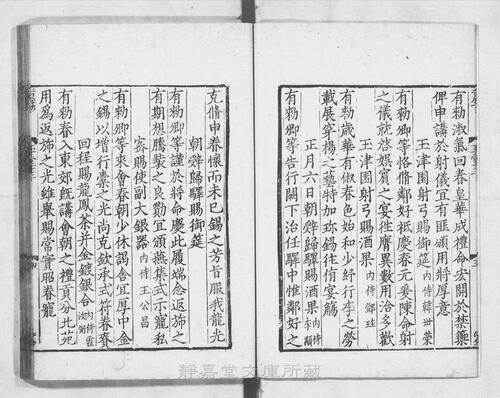 有勑淑氣回春皇華成禮命宏開於禁籞
俾申講於射儀宜有匪頒用將厚意
玉津園射弓賜御筵 内侍韓世榮
有勑卿等恪脩鄰好祗慶春元爰陳命射
之儀就啓娱賓之宴往膺異數用洽多歡
玉津園射弓賜酒果 内侍鄧珪
有勑歲華有俶春色始和少紓行李之勞
載展穿楊之藝特加珎錫往侑宴觴
正月六日朝辤歸驛賜酒果 内侍李顒
有勑卿等告行闕下治任驛中惟鄰好之
克脩申眷懷而未已錫之芳旨服我龍光
朝辤歸驛賜御筵
有勑卿等謹於將命慶此履端念返斾之
有期想騰裝之良勤宜頒燕集式示寵私
密賜使副大銀器 内侍王公昌
有勑卿等來會春朝少休謁舍宜厚中金
之錫以增行橐之光尚克欽承式符眷眷
回程賜龍鳳茶并金鍍銀合
有勑春入東郊旣講會朝之禮貢分北苑
用爲返斾之光錐舉賜常實昭眷寵
靜嘉堂文庫所藏